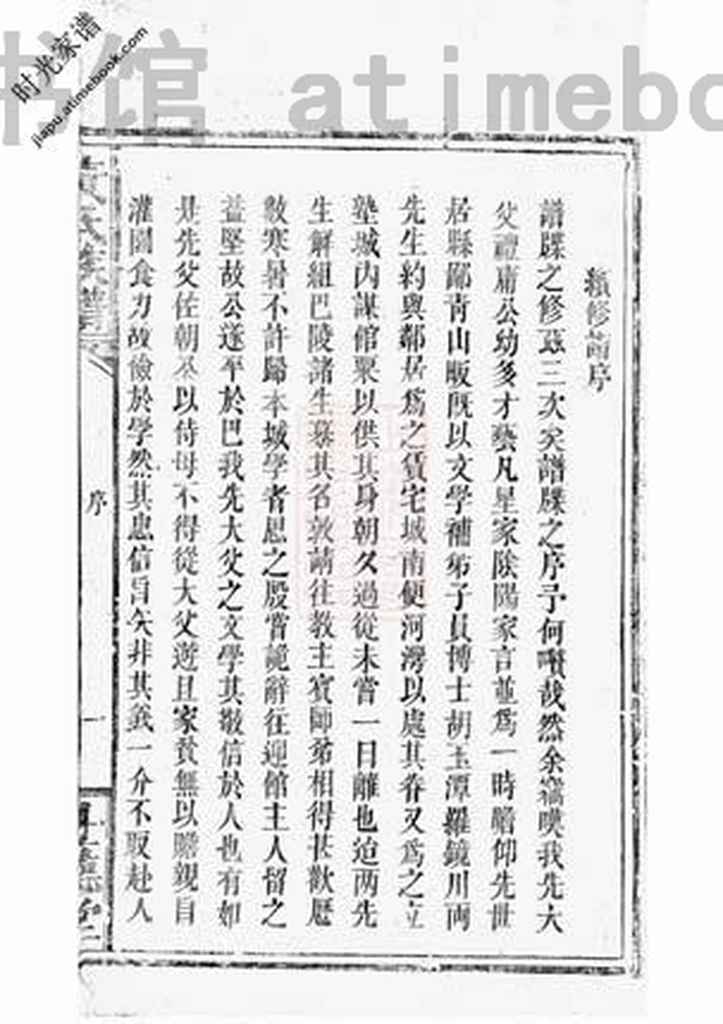 书馆 atimebo
时光家谱
jiapu.atimebook.com
續修譜序
譜牒之修茲三次矣譜牒之序予何囋哉然余竊嘆我先大
父禮庸公幼多才藝凡星家陰陽家言並爲一時瞻仰先世
居縣鄙青山畈既以文學補弟子員博士胡玉潭羅鏡川兩
先生約與鄰居爲之賃宅城南便河灣以處其眷又爲之立
塾城內謀館粟以供其身朝夕過從未嘗一日離也迨两先
生解組巴陵諸生慕其名敦請往教主賓師弟相得甚歡歷
數寒暑不許歸本城學者思之殷嘗詭辭往迎館主人留之
益堅故公遂卒於巴我先大父之文學其敬信於人也有如
是先父佐朝公以侍母不得從大父遊且家貧無以贍親自
灌園食力故儉於學然其忠信自矢非其義一介不取赴人
氏族譜
序
一